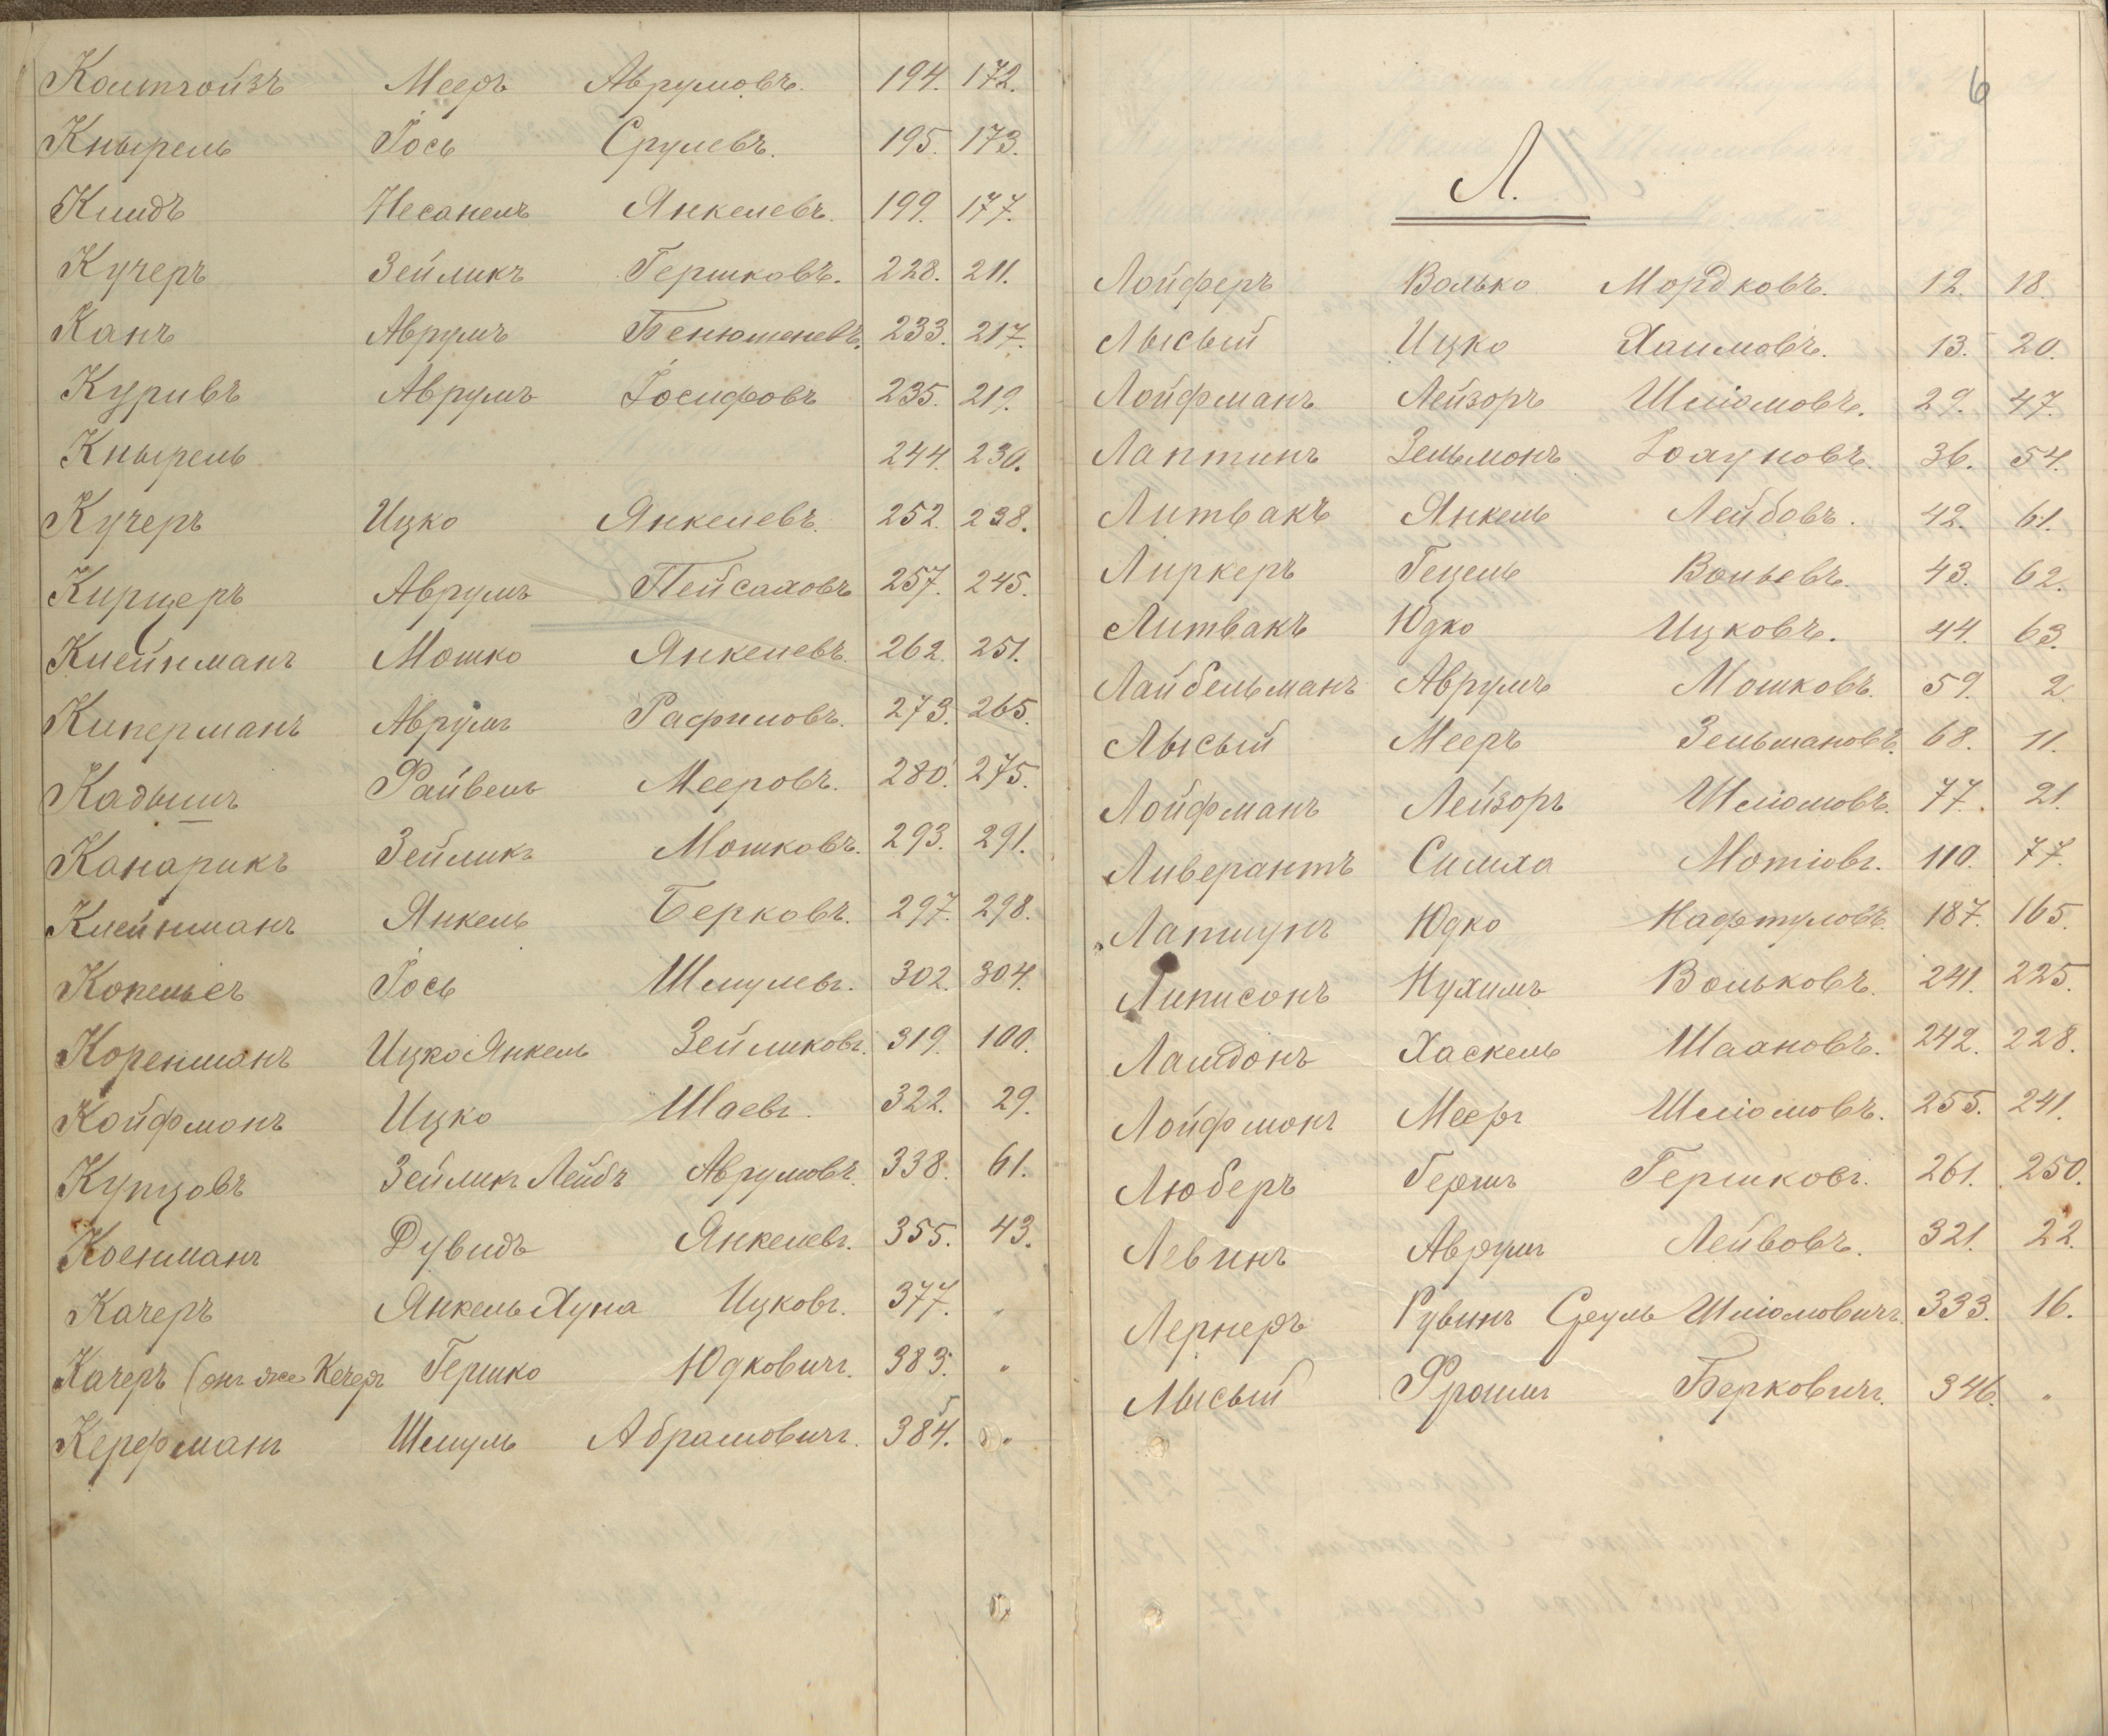 Колтгойзъ Мееръ Аврумовъ. 194. 172.
Кнырель Іось Срулевъ. 195. 173.
Килидъ Несанель Янкелевъ. 199. 177.
Кучеръ Зейликъ Гершковъ. 228. 211.
Канъ Аврумъ Бенюменевъ. 233. 217.
Куривъ Аврумъ Іосифовъ 235. 219.
Кнырель 244. 230.
Кучеръ Ицко Янкелевъ. 252. 238.
Кирцеръ Аврумъ Пейсаховъ 257. 245.
Клейнманъ Мошко Янкелевъ. 262. 251.
Киперманъ Аврумъ Рафиловъ. 273. 265.
Кадышъ Файвель Мееровъ. 280. 275.
Канарикъ Зейликъ Мошковъ. 293. 291.
Клейнманъ Янкель Берковъ. 297. 298.
Копельсъ Іось Шмулевъ. 302. 304.
Коренманъ Ицко Янкель Зейликовъ. 319. 100.
Койфманъ Ицко Шаевъ. 322. 29.
Купцовъ Зейликъ Лейбъ Аврумовъ. 338. 61.
Коенманъ Дувидъ Янкелевъ. 355. 43.
Качеръ Янкель Хуна Ицковъ. 377. "
Качеръ (онъ же Кечеръ Гершко Юдковичъ. 383. "
Керфманъ Шмуль Абрамовичъ. 384. "
6
Л.
Лойферъ Волько Мордковъ. 12. 18.
Лысый Ицко Хаимовъ. 13. 20.
Лойфманъ Лейзоръ Шліомовъ. 29. 47.
Лаптинъ Зельмонъ 36. 54.
Литвакъ Янкель Лейбовъ. 42. 61.
Лиркеръ Гецель Вольевъ. 43. 62.
Литвакъ Юдко Ицковъ. 44. 63.
Лайбельманъ Аврумъ Мошковъ. 59. 2.
Лысый Мееръ Зельмановъ. 68. 11.
Лойфманъ Лейзоръ Шліомовъ. 77. 21.
Ливерантъ Симха Мотіовъ. 110. 77.
Лапшунъ Юдко Нафтуловъ. 187. 165.
Липисонъ Нухимъ Вольковъ. 241. 225.
Ламдонъ Хаскель Шаановъ. 242. 228.
Лойфмонъ Мееръ Шліомовъ. 255. 241.
Люберъ Гершъ Гершковъ. 261. 250.
Левинъ Аврумъ Лейбовъ. 321. 22.
Лернеръ Рувинъ Сруль Шліомовичъ. 333. 16.
Лысый Фроимъ Берковичъ. 346. "